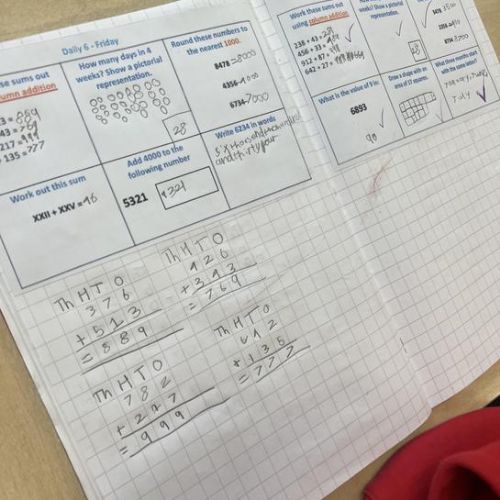 Daily 6 - Friday
se sums out
umn addition
3 = 889
43 = 769
217 = 999
135 = 777
How many days in 4
weeks? Show a pictorial
representation.
28
Round these numbers to
the nearest 1000.
8476
4356
6734 7000
Work out this sum
XXII + XXV =
Add 4000 to the
following number
5321
9321
Write 6234 in words
Th H T O
3 7 6
+ 5 1 3
= 8 8 9
Th H T O
4 2 6
+ 3 4 3
= 7 6 9
Th H T O
7 8 2
+ 2 1 7
= 9 9 9
Th H T O
6 4 2
+ 1 3 5
= 7 7 7
Work these sums out
using column addition
238 + 43 =
456 + 33 =
912 + 87 =
642 + 27 =
weeks? Show a pictorial
representation.
28
What is the value of 9 in:
6893
90
Draw a shape with an
area of 17 squares.
What three months start
with the same letter?